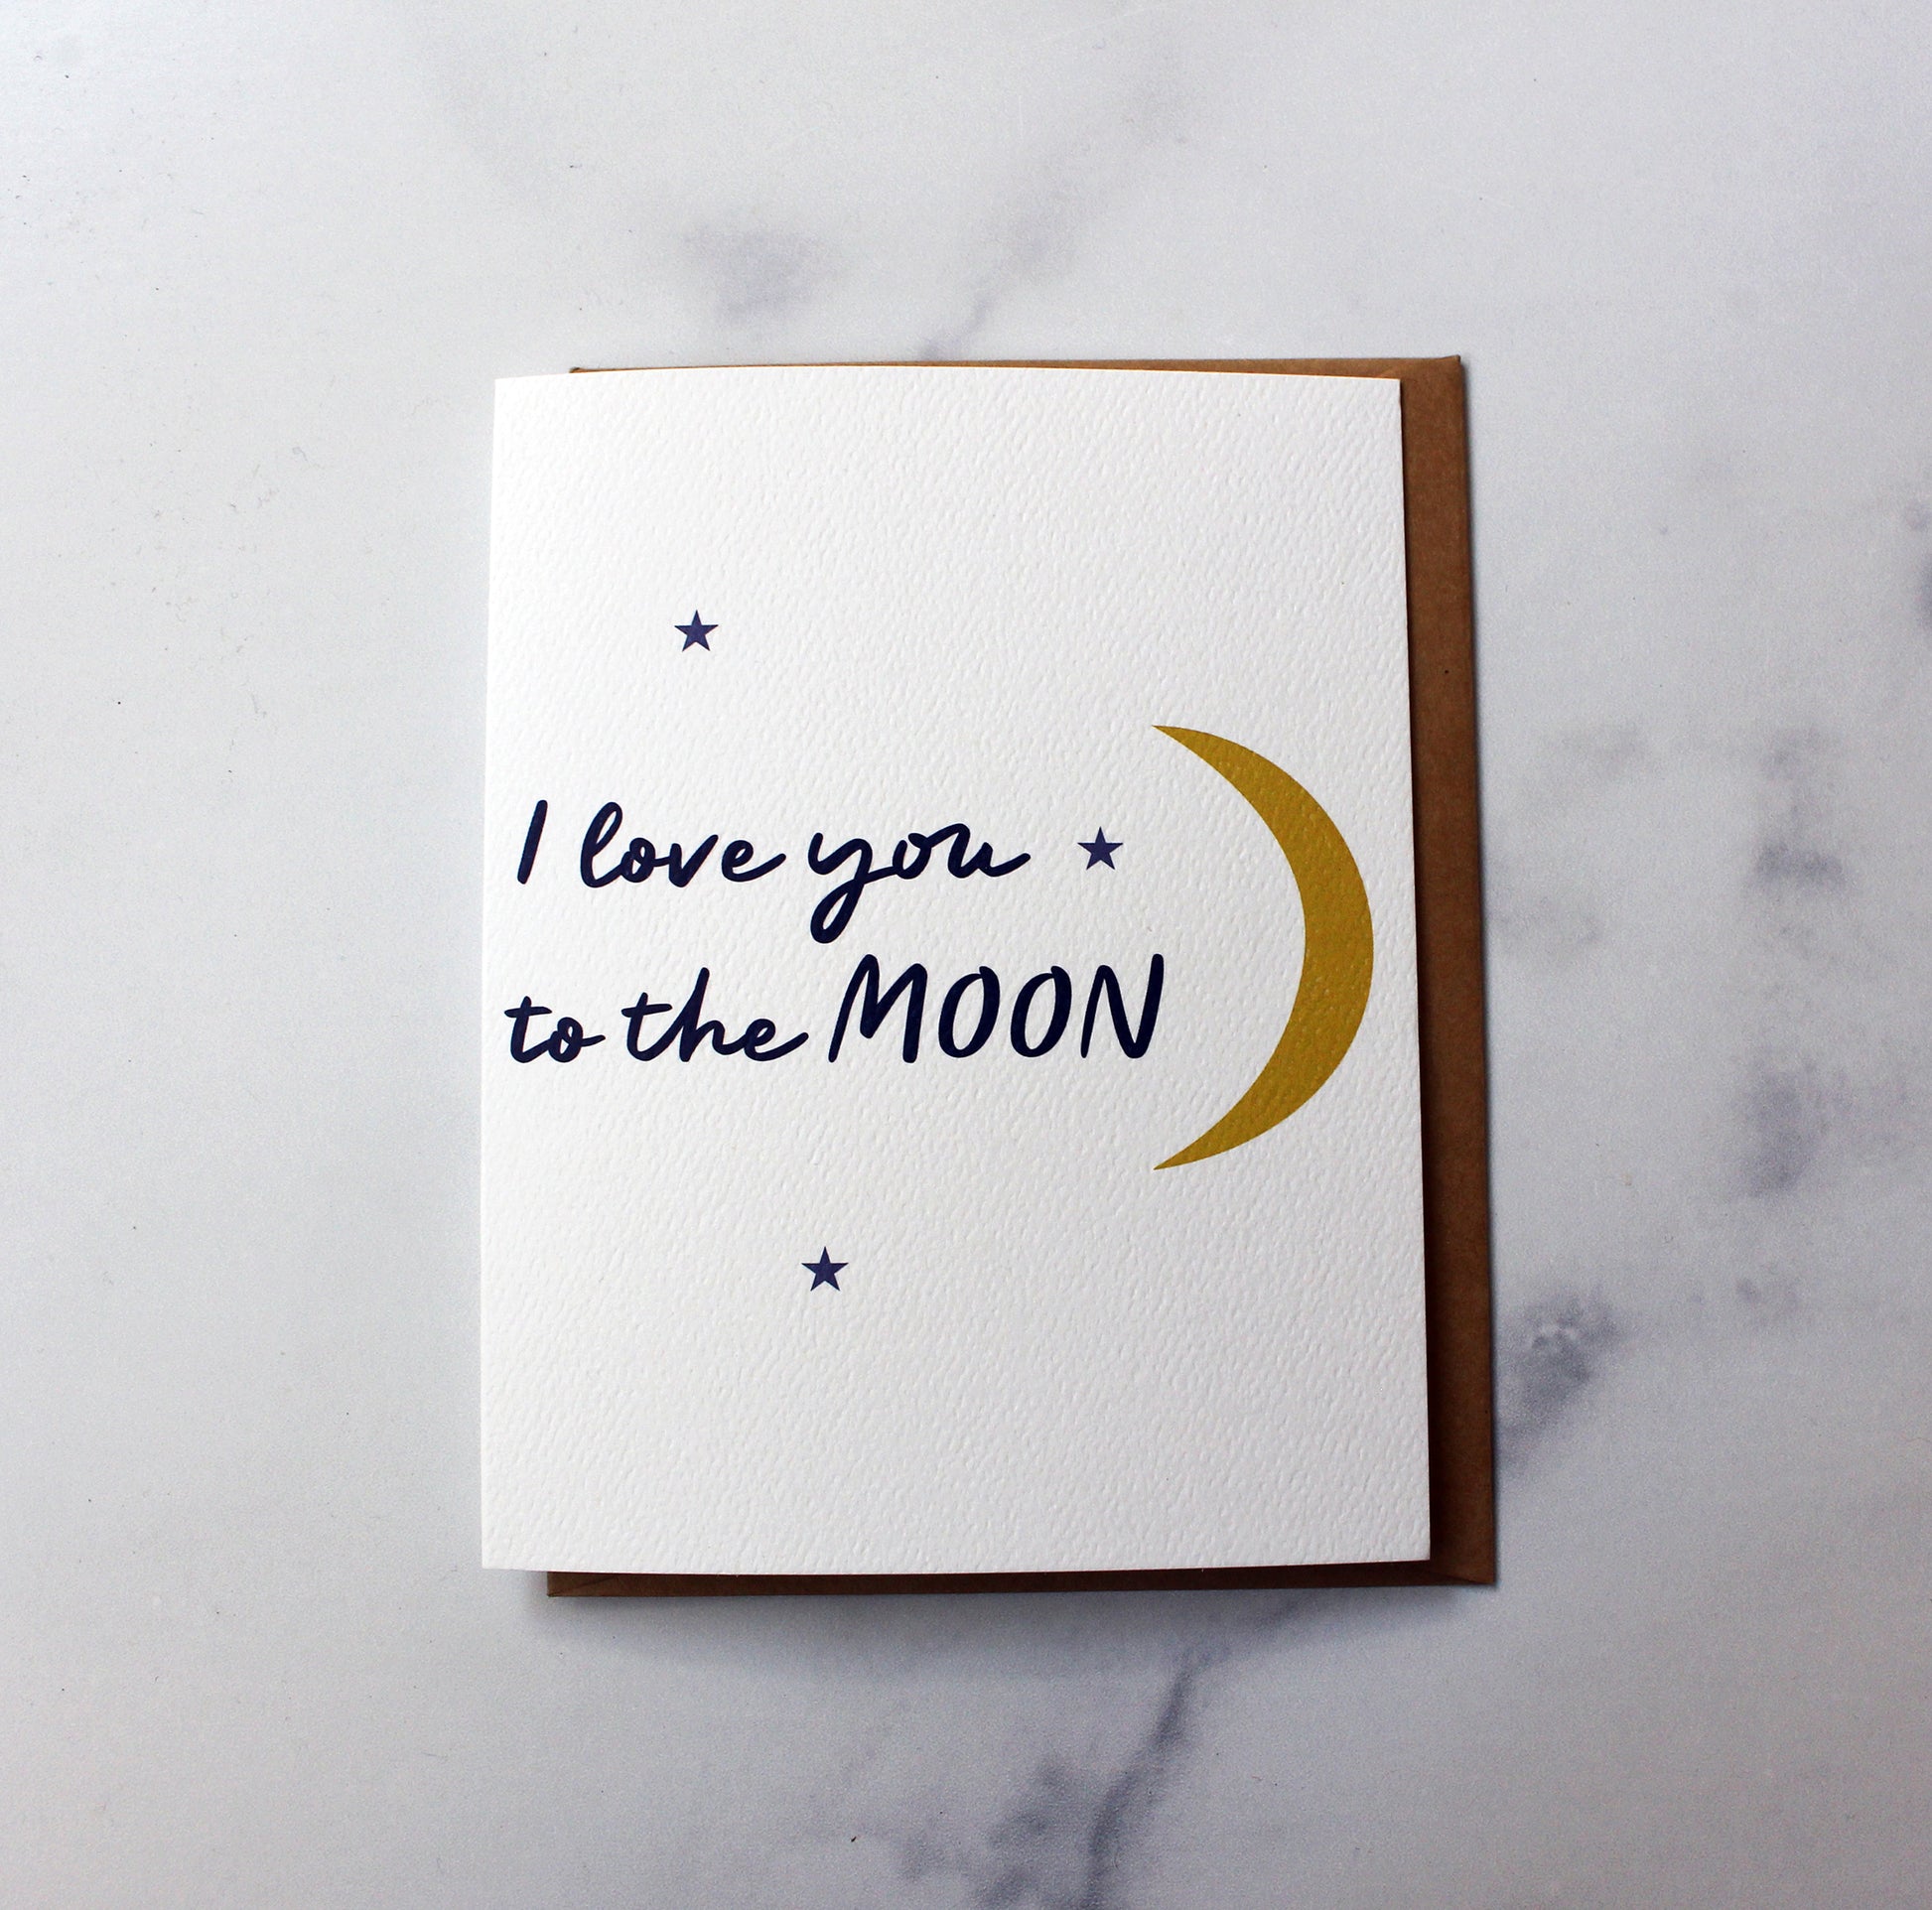 I love you
to the MOON